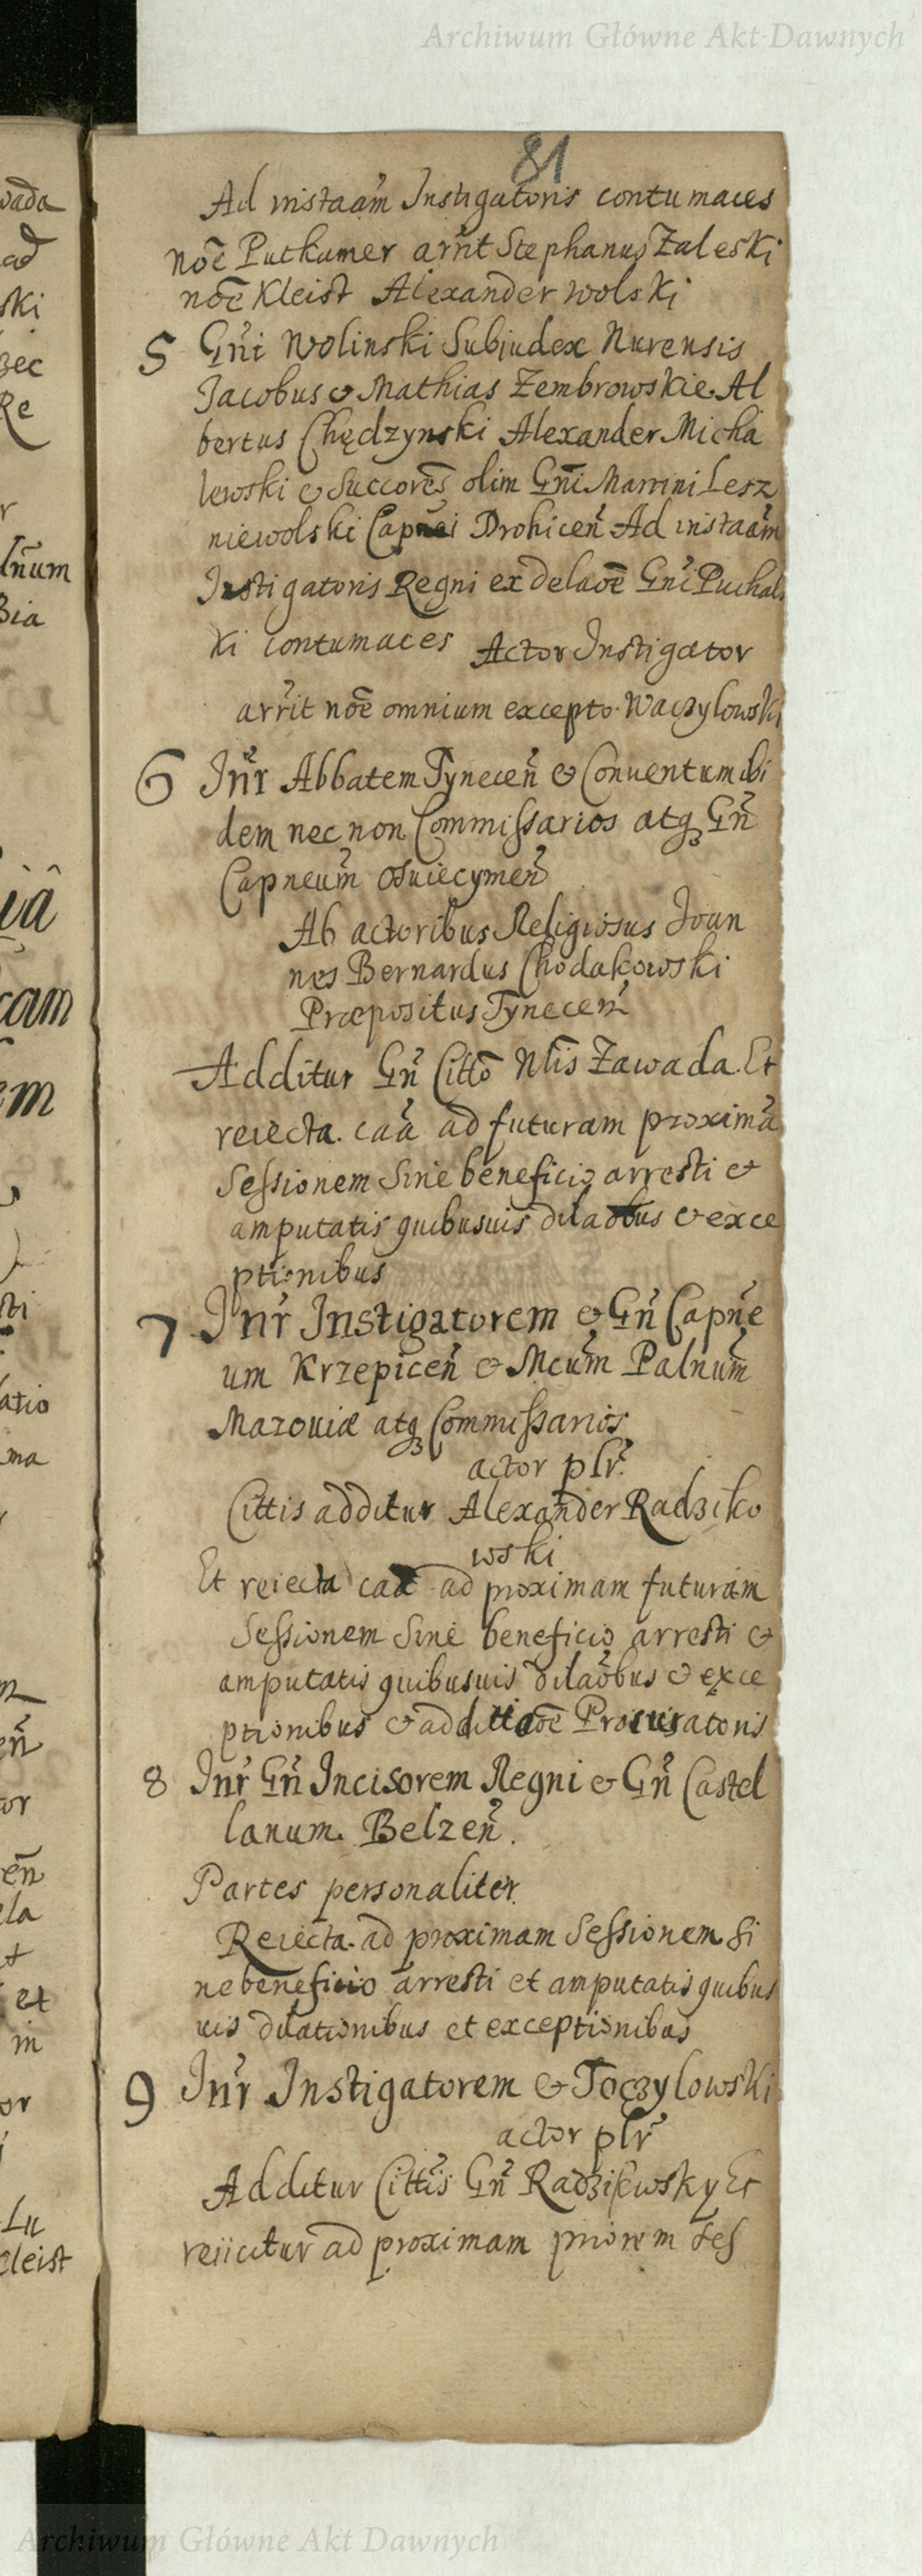 Archiwum Główne Akt Dawnych
81
Ad instaam̃ Instigatoris contumaces
noẽ Putkamer arr̃it Stephanus Zaleski
noẽ Kleist Alexander Wolski
5 Gñi Wolinski Subiudex Nurensis
Jacobus & Mathias Zembrowskie Al
bertus Chędzynski Alexander Micha
lewski & Succorẽs olim Gñi Martini Lesz
niewolski Capnei Drohiceñ Ad instaam̃
Instigatoris Regni ex delaoẽ Gñi Puchals
ki contumaces Actor Instigator
arr̃it noẽ omnium excepto Waczylowski
6 Iñr Abbatem Tyneceñ & Conuentum ibi
dem nec non Commissarios atq̃ Gñ
Capneum̃ Osuiecymeñ
Ab actoribus Religiosus Joan
nes Bernardus Chodakowski
Præpositus Tyneceñ
Additur Gñ Citto Nlis Zawada. Et
reiecta caã ad futuram proximã
Sessionem Sine beneficio arresti &
amputatis quibusuis dilaõbus & exce
ptionibus
7 Iñr Instigatorem & Gñ Capñe
um Krzepiceñ & Mcum̃ Palnum̃
Mazouiæ atq̃ Commissarios
actor plr̃
Cittis additur Alexander Radziko
wski
Et reiecta caã ad proximam futuram
Sessionem Sine beneficio arresti &
amputatis quibusuis dilaõbus & exce
ptionibus & additioẽ Procuratoris
8 Iñr Gñ Incisorem Regni & Gñ Castel
lanum Belzeñ.
Partes personaliter
Reiecta ad proximam Sessionem Si
ne beneficio arresti et amputatis quibus
uis dilationibus et exceptionibus
9 Iñr Instigatorem & Toczylowski
actor plr̃
Additur Cittis Gñ Radzikwsky Et
reiicitur ad proximam priorem Ses
Archiwum Główne Akt Dawnych